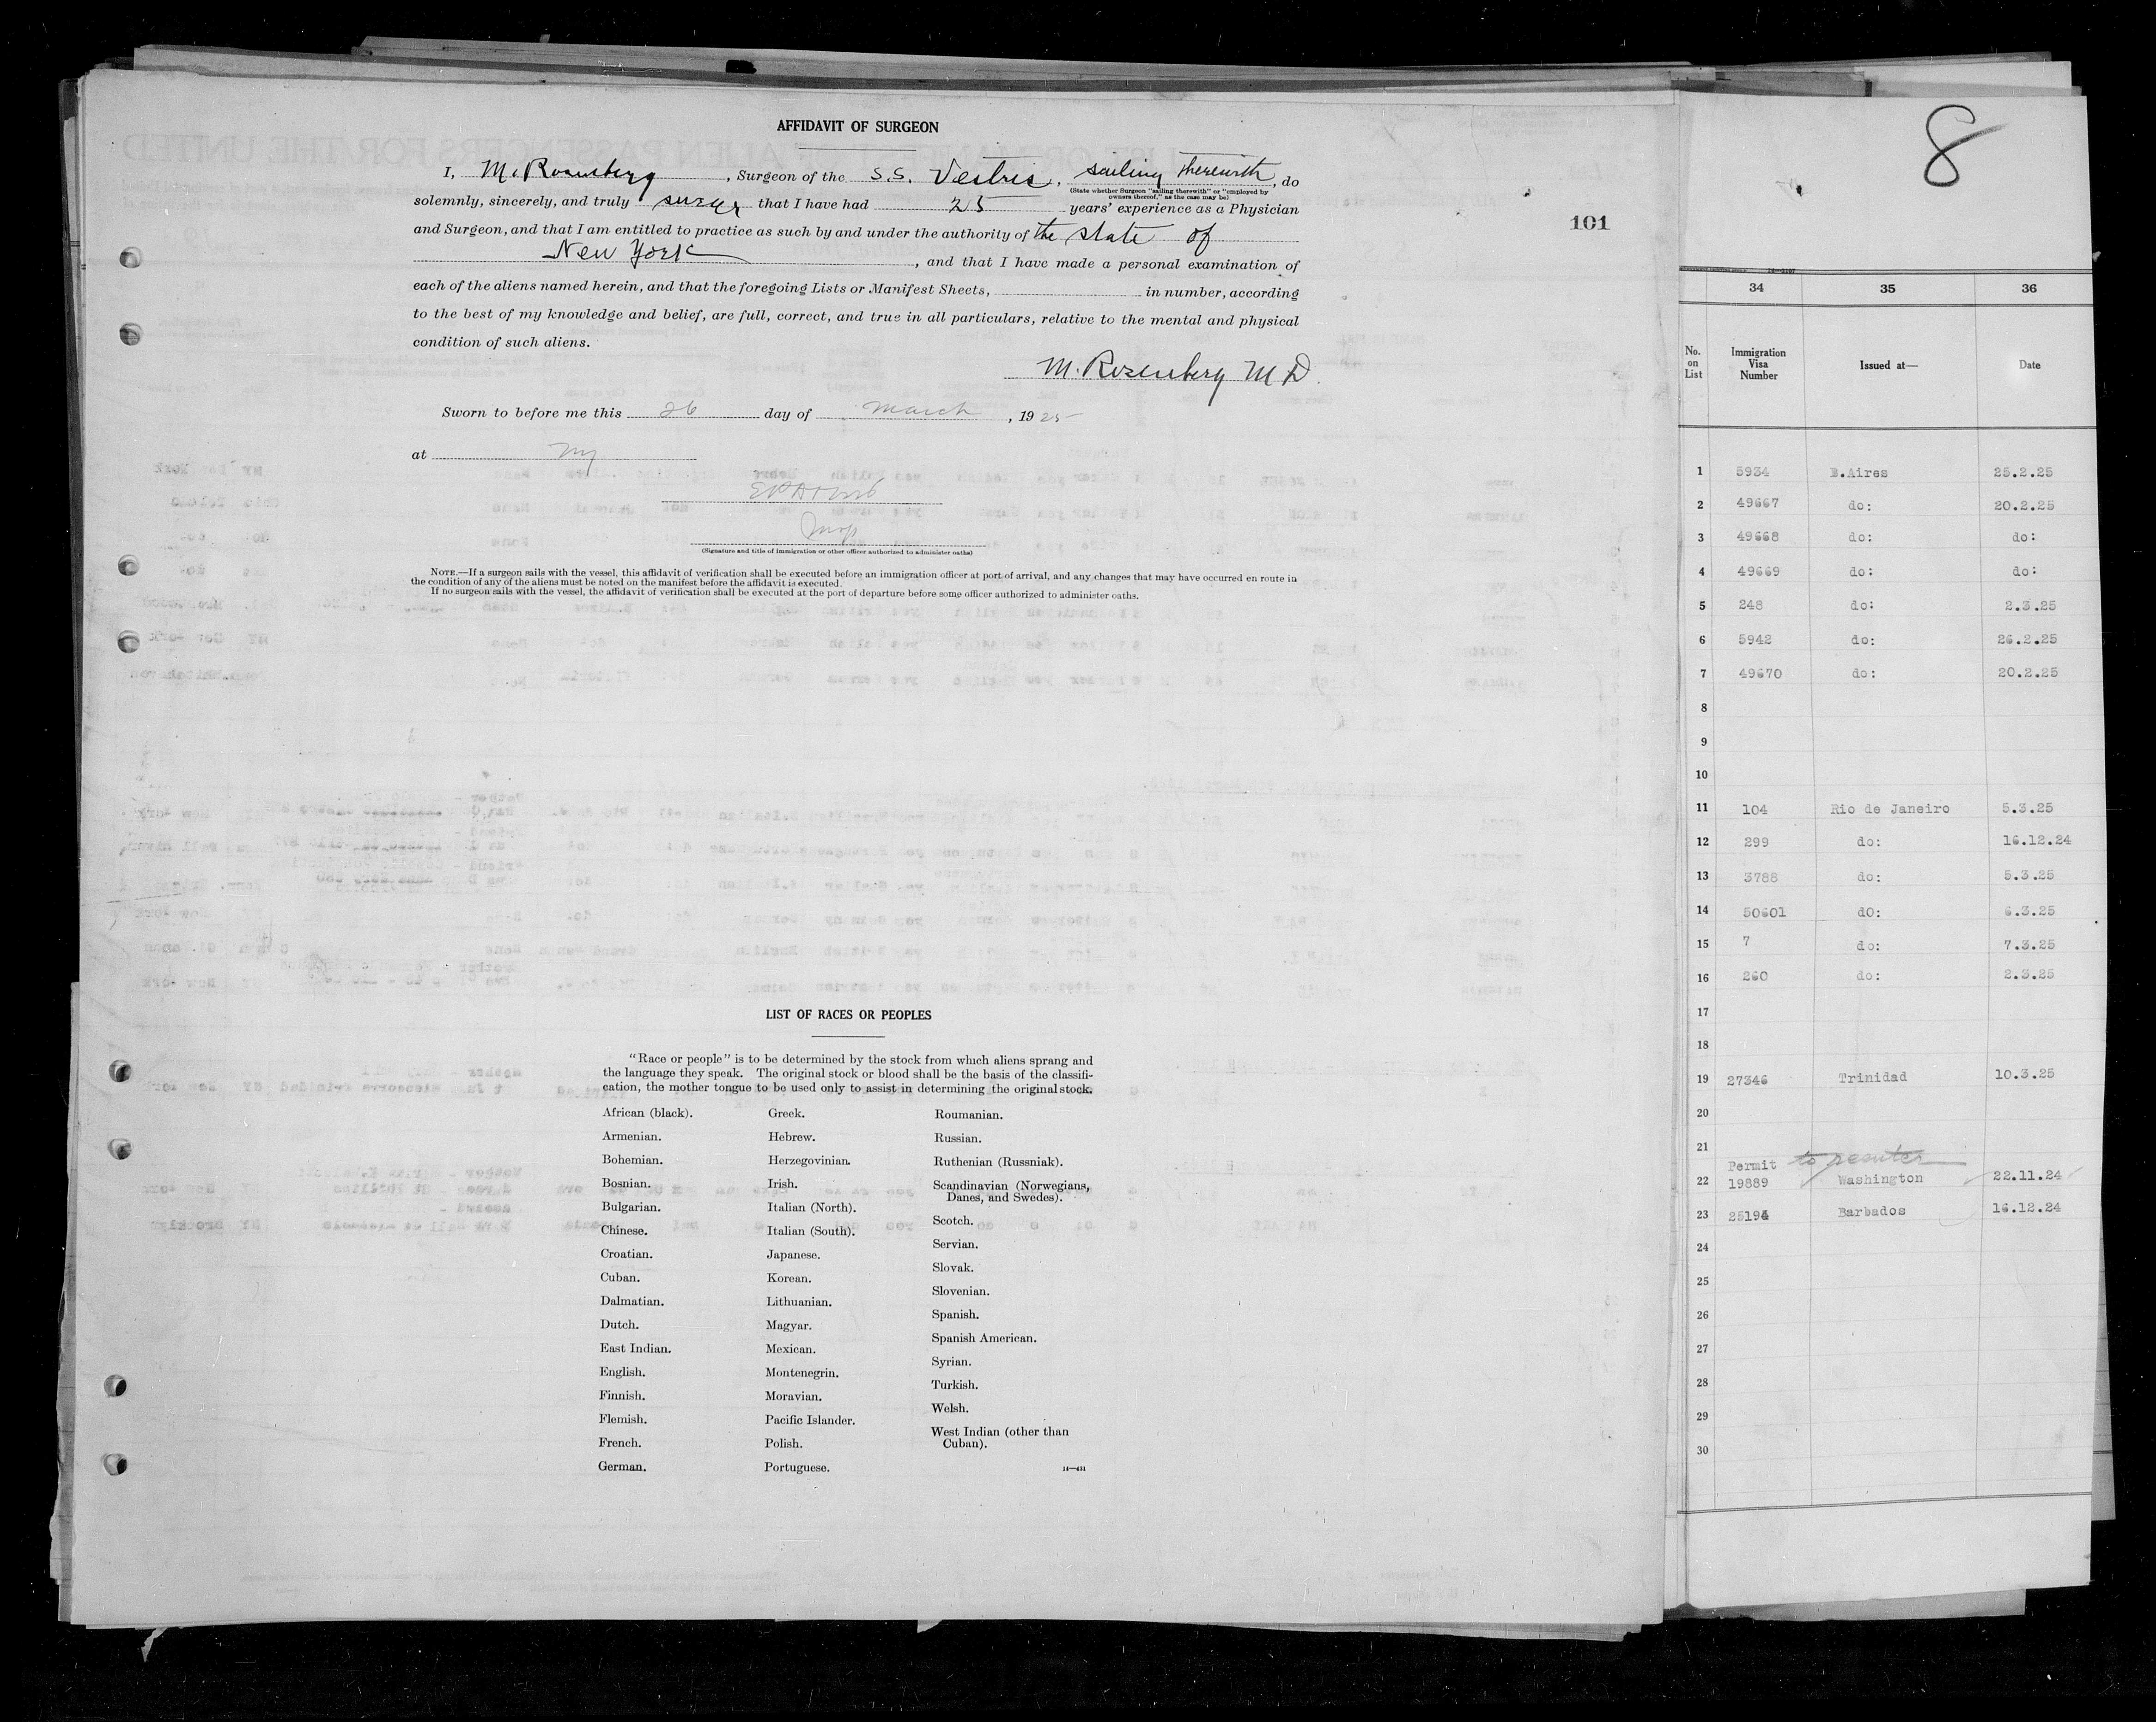 AFFIDAVIT OF SURGEON
I, M. Rosenberg, Surgeon of the S.S. Vestris, sailing therewith, do
(State whether Surgeon "sailing therewith" or "employed by
owners thereof," as the case may be)
solemnly, sincerely, and truly swear that I have had 25 years' experience as a Physician
and Surgeon, and that I am entitled to practice as such by and under the authority of the state of
New York, and that I have made a personal examination of
each of the aliens named herein, and that the foregoing Lists or Manifest Sheets, in number, according
to the best of my knowledge and belief, are full, correct, and true in all particulars, relative to the mental and physical
condition of such aliens.
M. Rosenberg M D.
Sworn to before me this 26 day of March, 1925
at NY
Insp
(Signature and title of immigration or other officer authorized to administer oaths)
NOTE.—If a surgeon sails with the vessel, this affidavit of verification shall be executed before an immigration officer at port of arrival, and any changes that may have occurred en route in
the condition of any of the aliens must be noted on the manifest before the affidavit is executed.
If no surgeon sails with the vessel, the affidavit of verification shall be executed at the port of departure before some officer authorized to administer oaths.
LIST OF RACES OR PEOPLES
"Race or people" is to be determined by the stock from which aliens sprang and
the language they speak. The original stock or blood shall be the basis of the classifi-
cation, the mother tongue to be used only to assist in determining the original stock.
African (black).
Armenian.
Bohemian.
Bosnian.
Bulgarian.
Chinese.
Croatian.
Cuban.
Dalmatian.
Dutch.
East Indian.
English.
Finnish.
Flemish.
French.
German.
Greek.
Hebrew.
Herzegovinian.
Irish.
Italian (North).
Italian (South).
Japanese.
Korean.
Lithuanian.
Magyar.
Mexican.
Montenegrin.
Moravian.
Pacific Islander.
Polish.
Portuguese.
Roumanian.
Russian.
Ruthenian (Russniak).
Scandinavian (Norwegians,
Danes, and Swedes).
Scotch.
Servian.
Slovak.
Slovenian.
Spanish.
Spanish American.
Syrian.
Turkish.
Welsh.
West Indian (other than
Cuban).
14—431
8
101
34 35 36
No. on List Immigration Visa Number Issued at— Date
1 5934 B.Aires 25.2.25
2 49667 do: 20.2.25
3 49668 do: do:
4 49669 do: do:
5 248 do: 2.3.25
6 5942 do: 26.2.25
7 49670 do: 20.2.25
8
9
10
11 104 Rio de Janeiro 5.3.25
12 299 do: 16.12.24
13 3788 do: 5.3.25
14 50601 dO: 6.3.25
15 7 do: 7.3.25
16 260 do: 2.3.25
17
18
19 27346 Trinidad 10.3.25
20
21
Permit to reenter
22 19889 Washington 22.11.24
23 25194 Barbados 16.12.24
24
25
26
27
28
29
30